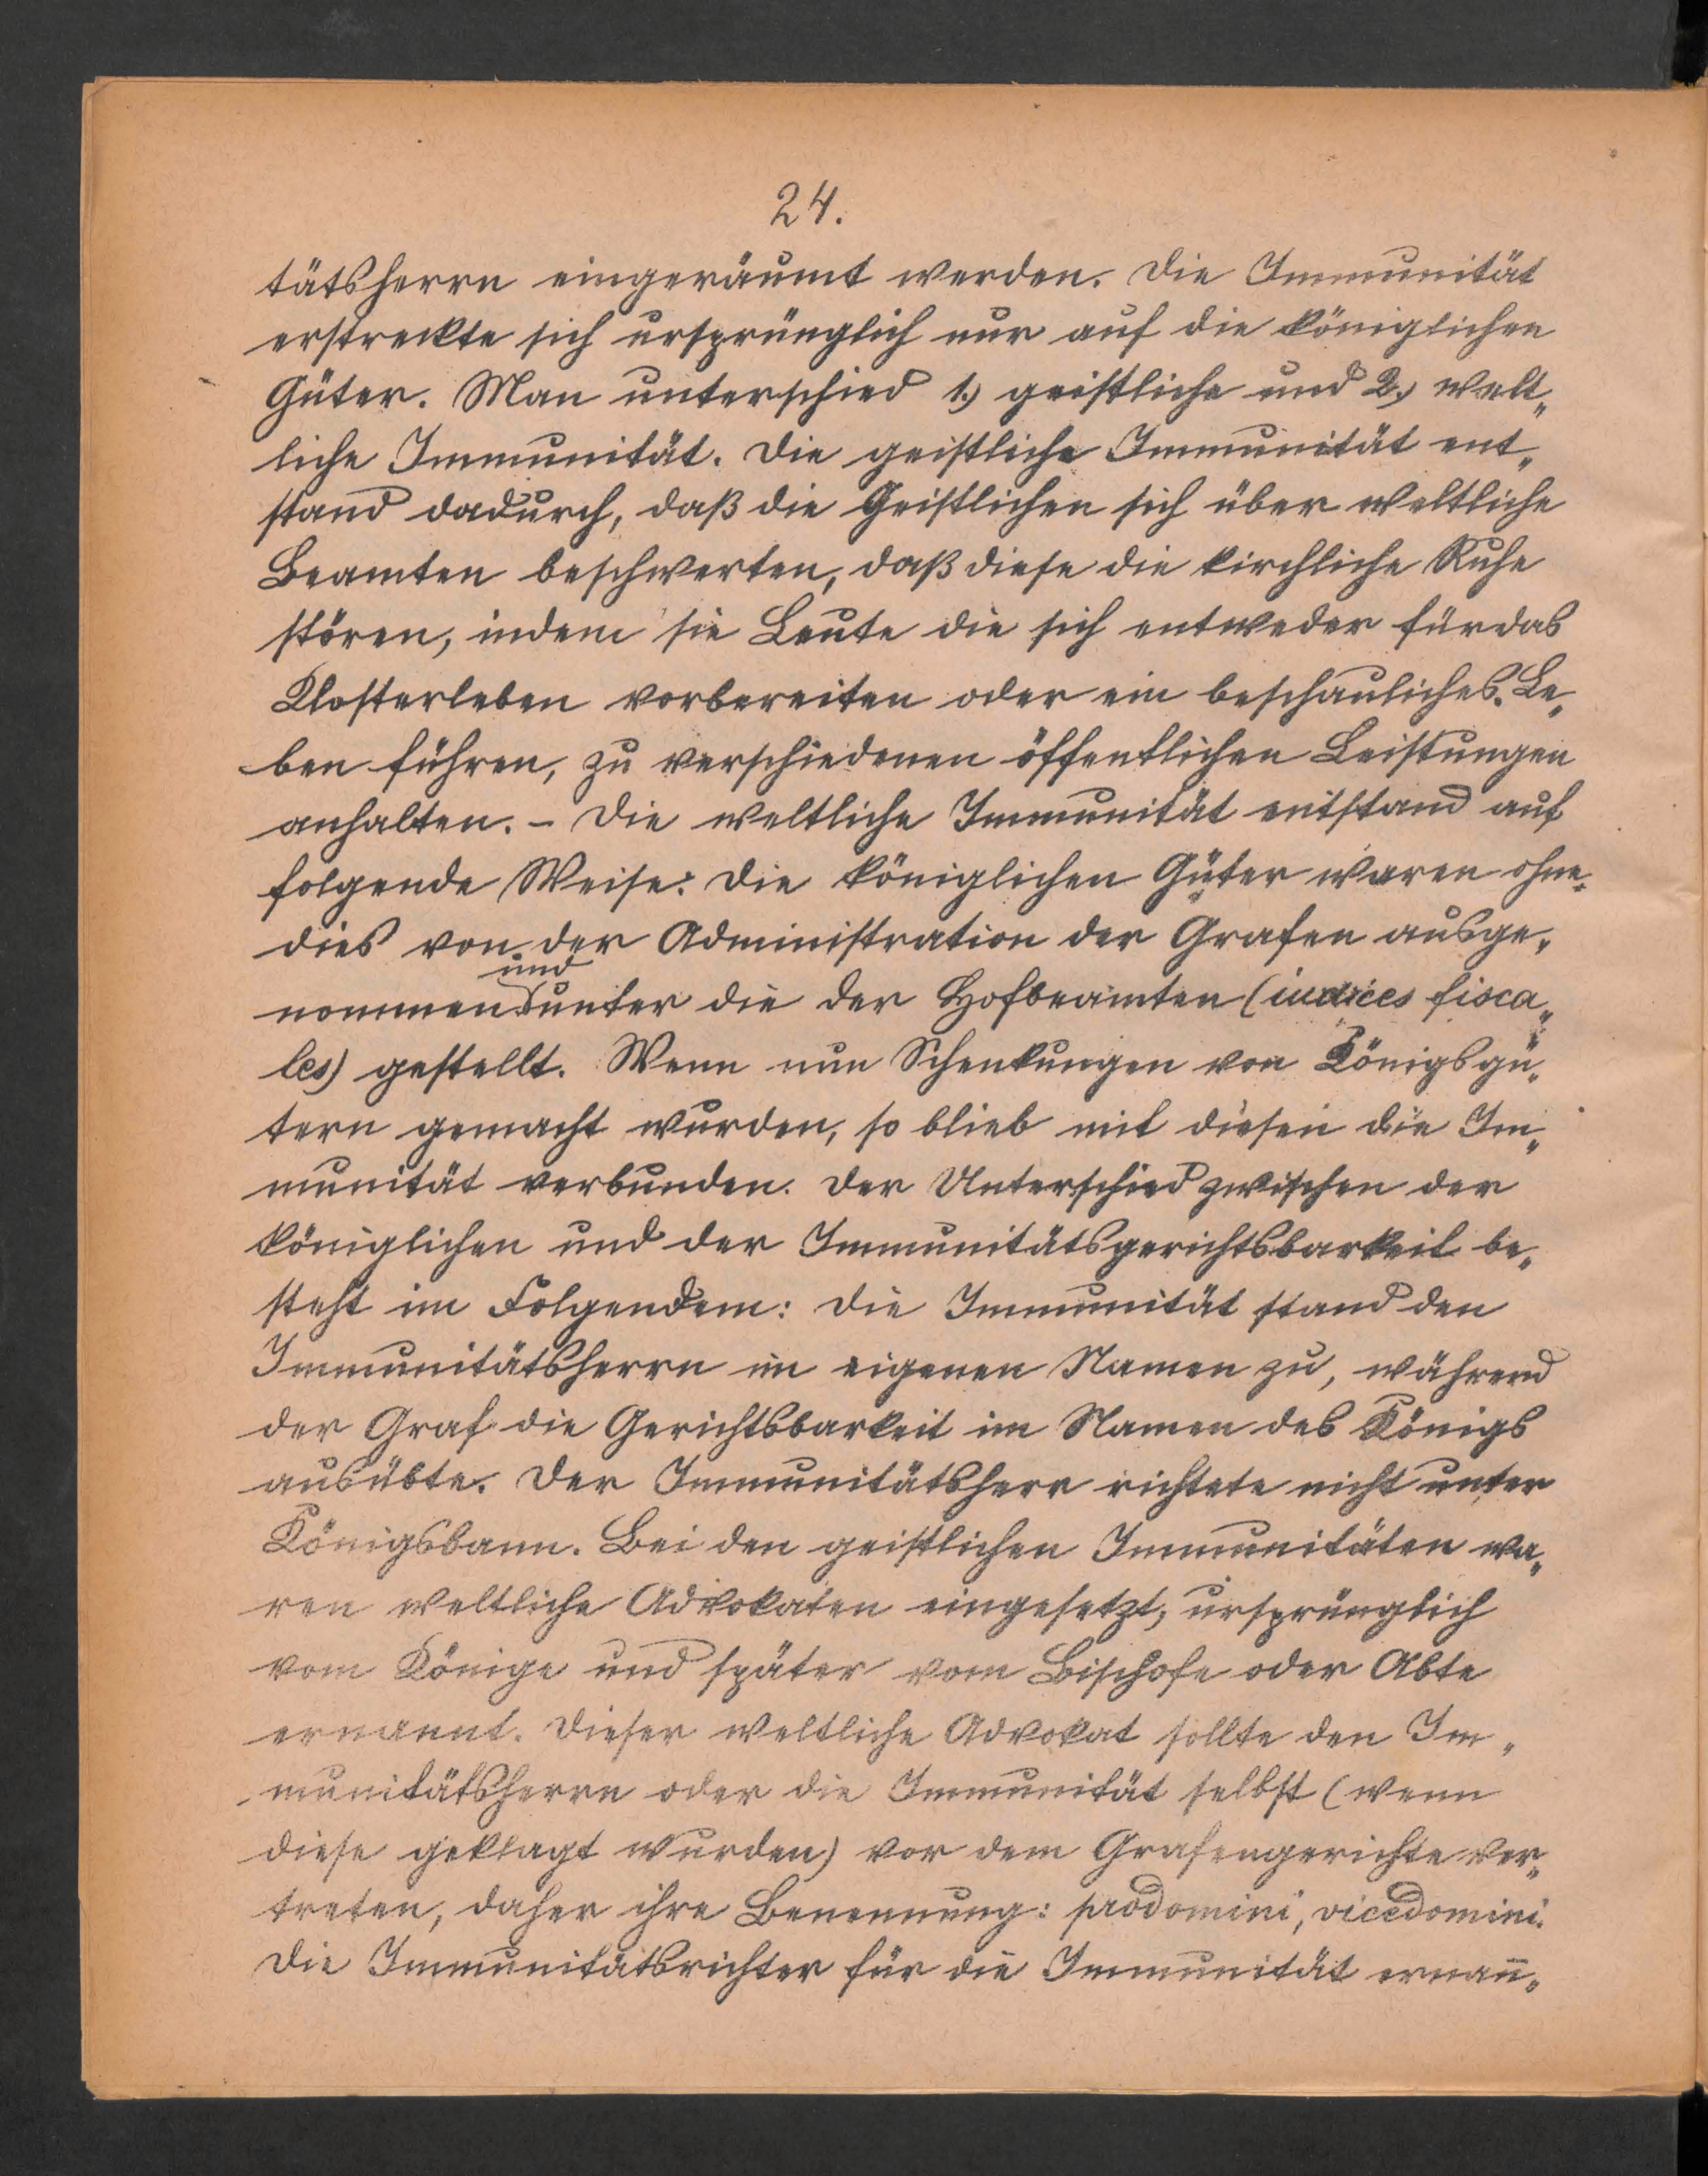 24.
tätsherrn eingeräumt werden. Die Immunität
erstreckte sich ursprünglich nur auf die königlichen
Güter. Man unterschied 1.) geistliche und 2.) welt„
liche Immunität. Die geistliche Immunität ent„
stand dadurch, daß die Geistlichen sich über weltliche
Beamten beschwerten, daß diese die kirchliche Ruhe
stören, indem sie Leute die sich entweder für das
Klosterleben vorbereiten oder ein beschauliches Le„
ben führen, zu verschiedenen öffentlichen Leistungen
anhalten. – Die weltliche Immunität entstand auf
folgende Weise: Die königlichen Güter waren ohne„
dies von der Administration der Grafen ausge„
nommen und unter die der Hofbeamten (iudices fisca„
les) gestellt. Wenn nun Schenkungen von Königsgü„
tern gemacht wurden, so blieb mit diesen die Im„
munität verbunden. Der Unterschied zwischen der
königlichen und der Immunitätsgerichtsbarkeit be„
steht im Folgendem: Die Immunität stand den
Immunitätsherrn im eigenen Namen zu, während
der Graf die Gerichtsbarkeit im Namen des Königs
ausübte. Der Immunitätsherr richtete nicht unter
Königsbann. Bei den geistlichen Immunitäten wa„
ren weltliche Advokaten eingesetzt, ursprünglich
vom Könige und später vom Bischofe oder Abte
ernannt. Dieser weltliche Advokat sollte den Im„
munitätsherrn oder die Immunität selbst (wenn
diese geklagt wurden) vor dem Grafengerichte ver„
treten, daher ihre Benennung: prodomini, vicedomini.
Die Immunitätsrichter für die Immunität ernan̄„